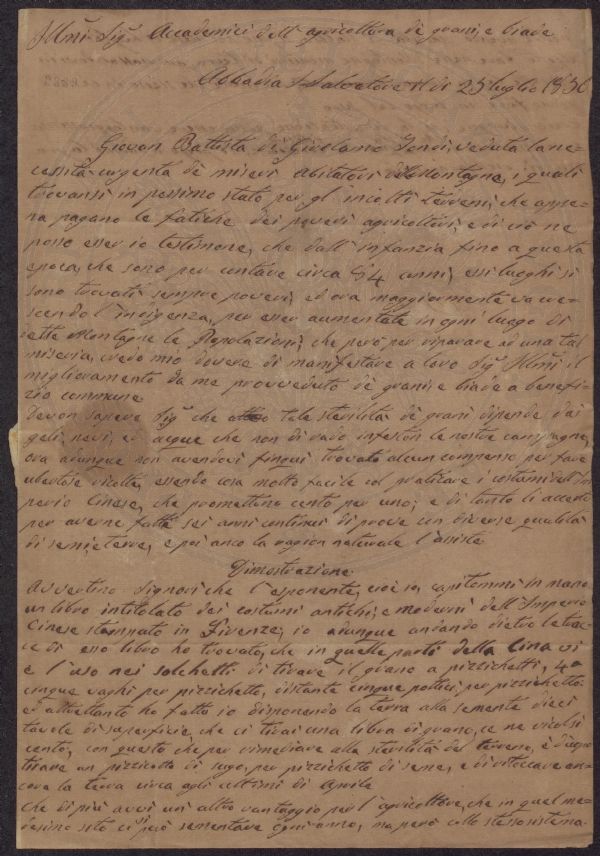 Ill.mi Sig.i Accademici dell'agricoltura di grani, e biade
Abbadia S. Salvatore li di 25 luglio 1836
Giovan Battista di Girolamo Tondi, veduta la ne=
cessità urgenta de miseri abitatori delle Montagne, i quali
trovansi in pessimo stato per gl'incolti terreni, che appe=
na pagano le fatiche dei poveri agricoltori, e di ciò ne
posso esser io testimone, che dall'infanzia fino a questa
epoca, che sono per contare circa 54 anni, essi luoghi si
sono trovati sempre poveri, ed ora maggiormente va cre=
scendo l'indigenza, per esser aumentate in ogni luogo di
dette Montagne le Popolazioni; che però per riparare ad una tal
miseria, vedo mio dovere di manifestare a loro Sig.i Ill.mi il
miglioramento da me provveduto di grani, e biade a benefi=
zio commune
Devon sapere Sig.i che tale sterilità di grani dipende dai
geli, nevi, ed acque che non di rado infestan le nostre campagne,
ora adunque non avendovi finqui trovato alcun compenso per fare
ubertose ricolte, essendo cosa molto facile col praticare i costumi dell'Im
perio Cinese, che promettono cento per uno; e di tanto li accerto
per averne fatte sei anni continui di prove con diverse qualità
di semi, e terre, e poi anco la ragion naturale l'assiste
Dimostrazione
Avvertino Signori che l'esponente, cioè io, capitommi in mano
un libro intitolato dei costumi antichi, e moderni dell'Imperio
Cinese stampato in Firenze, io adunque andando dietro le trac=
ce di esso libro ho trovato, che in quelle parti della Cina vi
è l'uso nei solchetti di tirare il grano a pizzichetti, 4 o
cinque vaghi per pizzichetto, distante cinque pollici per pizzichetto
ed altrettanto ho fatto io disponendo la terra alla semente dieci
tavole di superficie, che ci tirai una libra di grano, ce ne ricolsi
cento; con questo che per rimediare alla sterilità del terreno, è d'uopo
tirare un pizzicotto di sugo, per pizzichetto di seme, e di ritoccare an=
cora la terra circa agli ultimi di Aprile
Che di più avvi un altro vantaggio per l'agricoltore, che in quel me=
desimo sito ci si può sementare ogni anno, ma però collo stesso sistema